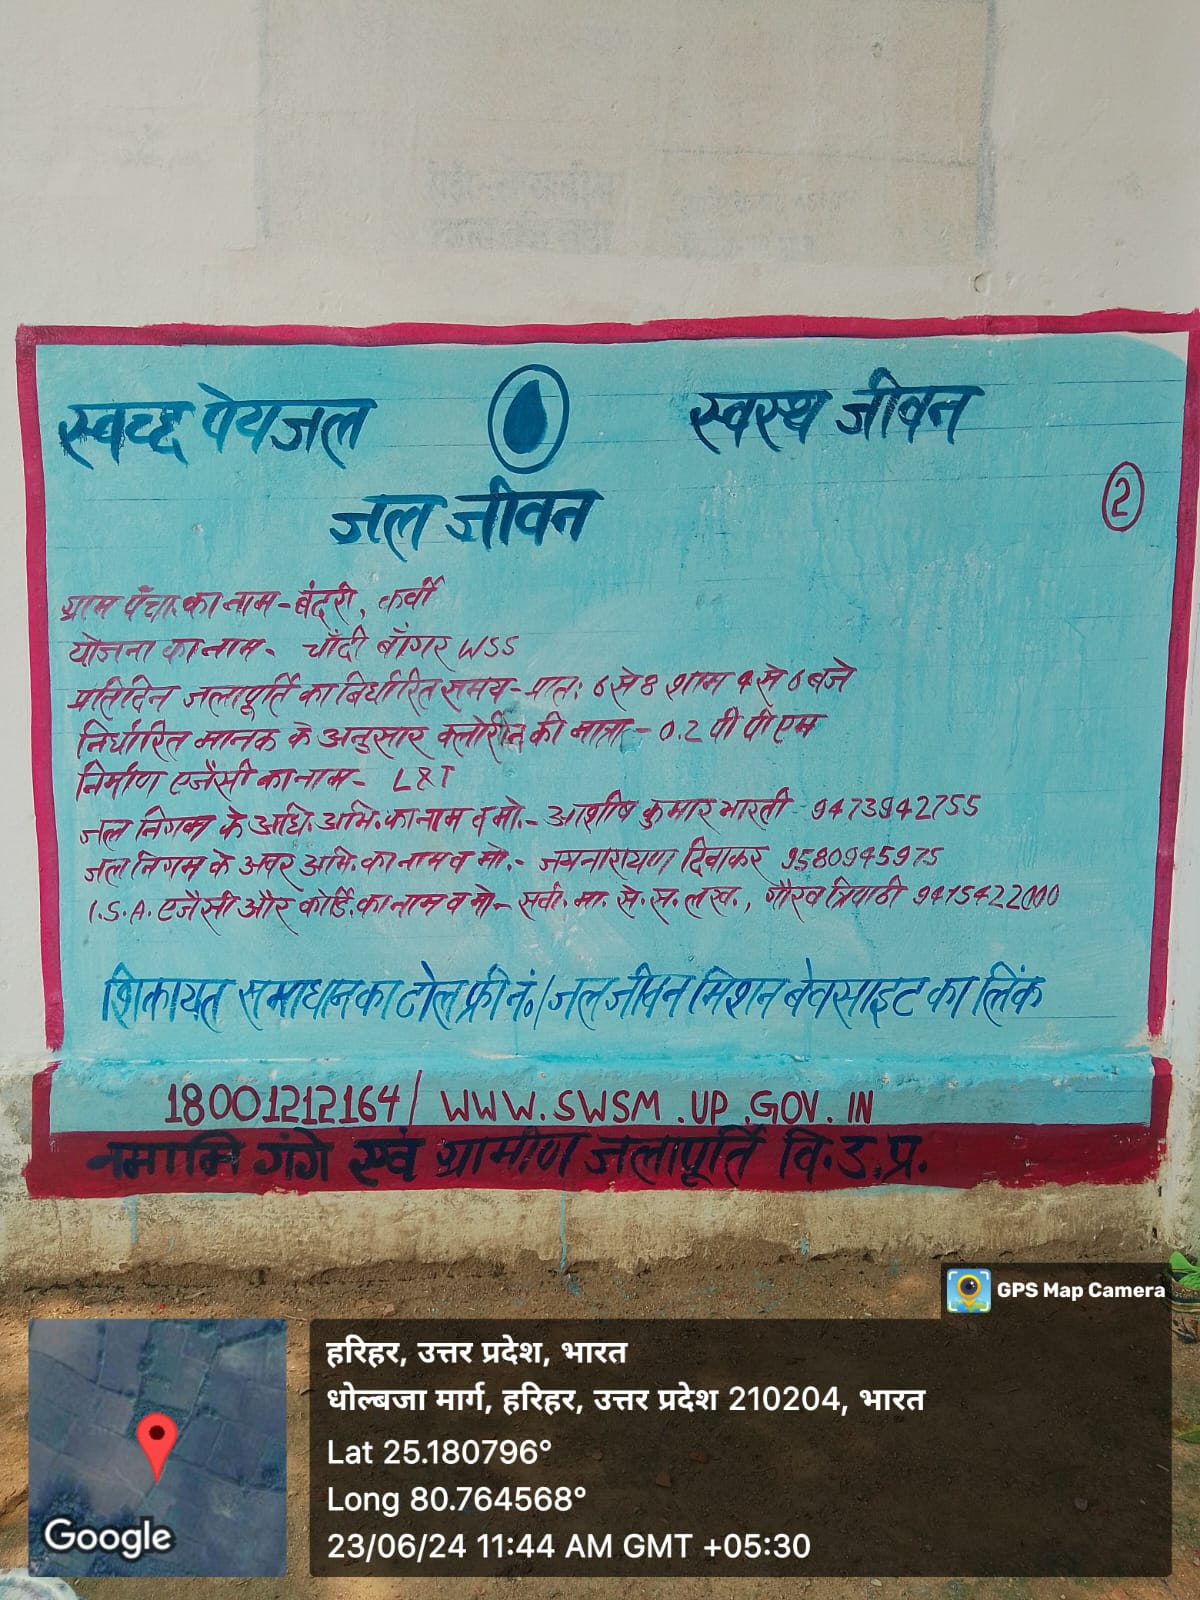 स्वच्छ पेयजल स्वस्थ जीवन
जल जीवन
2
ग्राम पंचा. का नाम - बंदरी, कर्वी
योजना का नाम - चाँदी बाँगर WSS
प्रतिदिन जलापूर्ति का निर्धारित समय - प्रातः 6 से 8 शाम 4 से 6 बजे
निर्धारित मानक के अनुसार क्लोरीन की मात्रा - 0.2 पी पी एम
निर्माण एजेंसी का नाम - L&T
जल निगम के अधि. अभि. का नाम व मो. - आशीष कुमार भारती - 9473942755
जल निगम के अवर अभि. का नाम व मो. - जयनारायण दिवाकर 9580945975
I.S.A. एजेंसी और कोर्डि. का नाम व मो - सर्वो. मा. से. स. लख., गौरव त्रिपाठी 9415422000
शिकायत समाधान का टोल फ्री नं./जल जीवन मिशन बेवसाइट का लिंक
18001212164/ WWW.SWSM.UP.GOV.IN
नमामि गंगे एवं ग्रामीण जलापूर्ति वि.उ.प्र.
GPS Map Camera
हरिहर, उत्तर प्रदेश, भारत
धोल्बजा मार्ग, हरिहर, उत्तर प्रदेश 210204, भारत
Lat 25.180796°
Long 80.764568°
23/06/24 11:44 AM GMT +05:30
Google